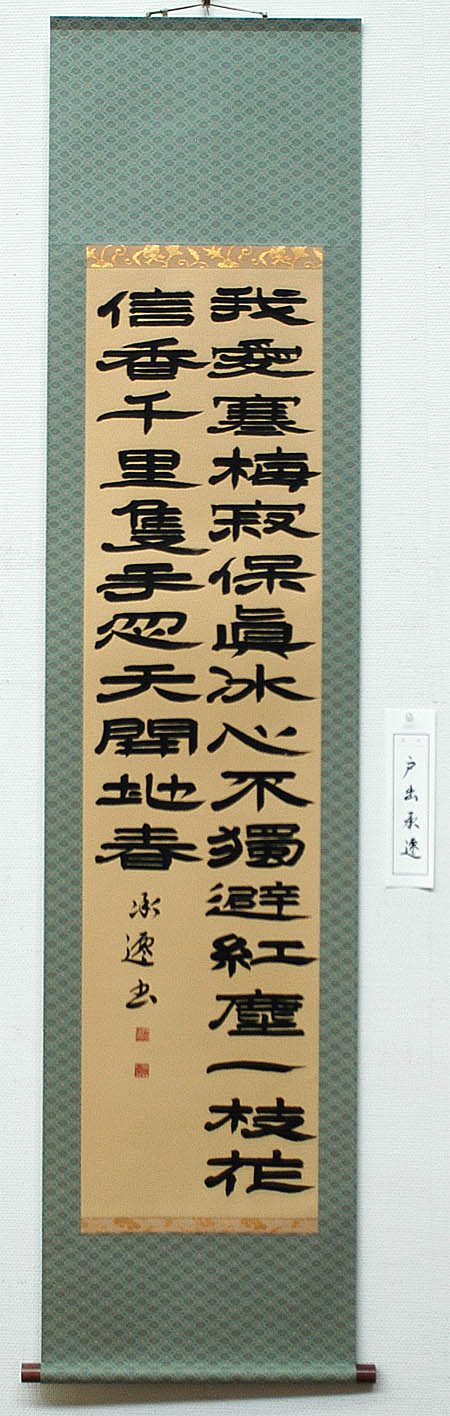 我愛寒梅寂保眞冰心不獨避紅塵一枝花
信香千里隻手忽天開地春
承遷書
戸出承遷